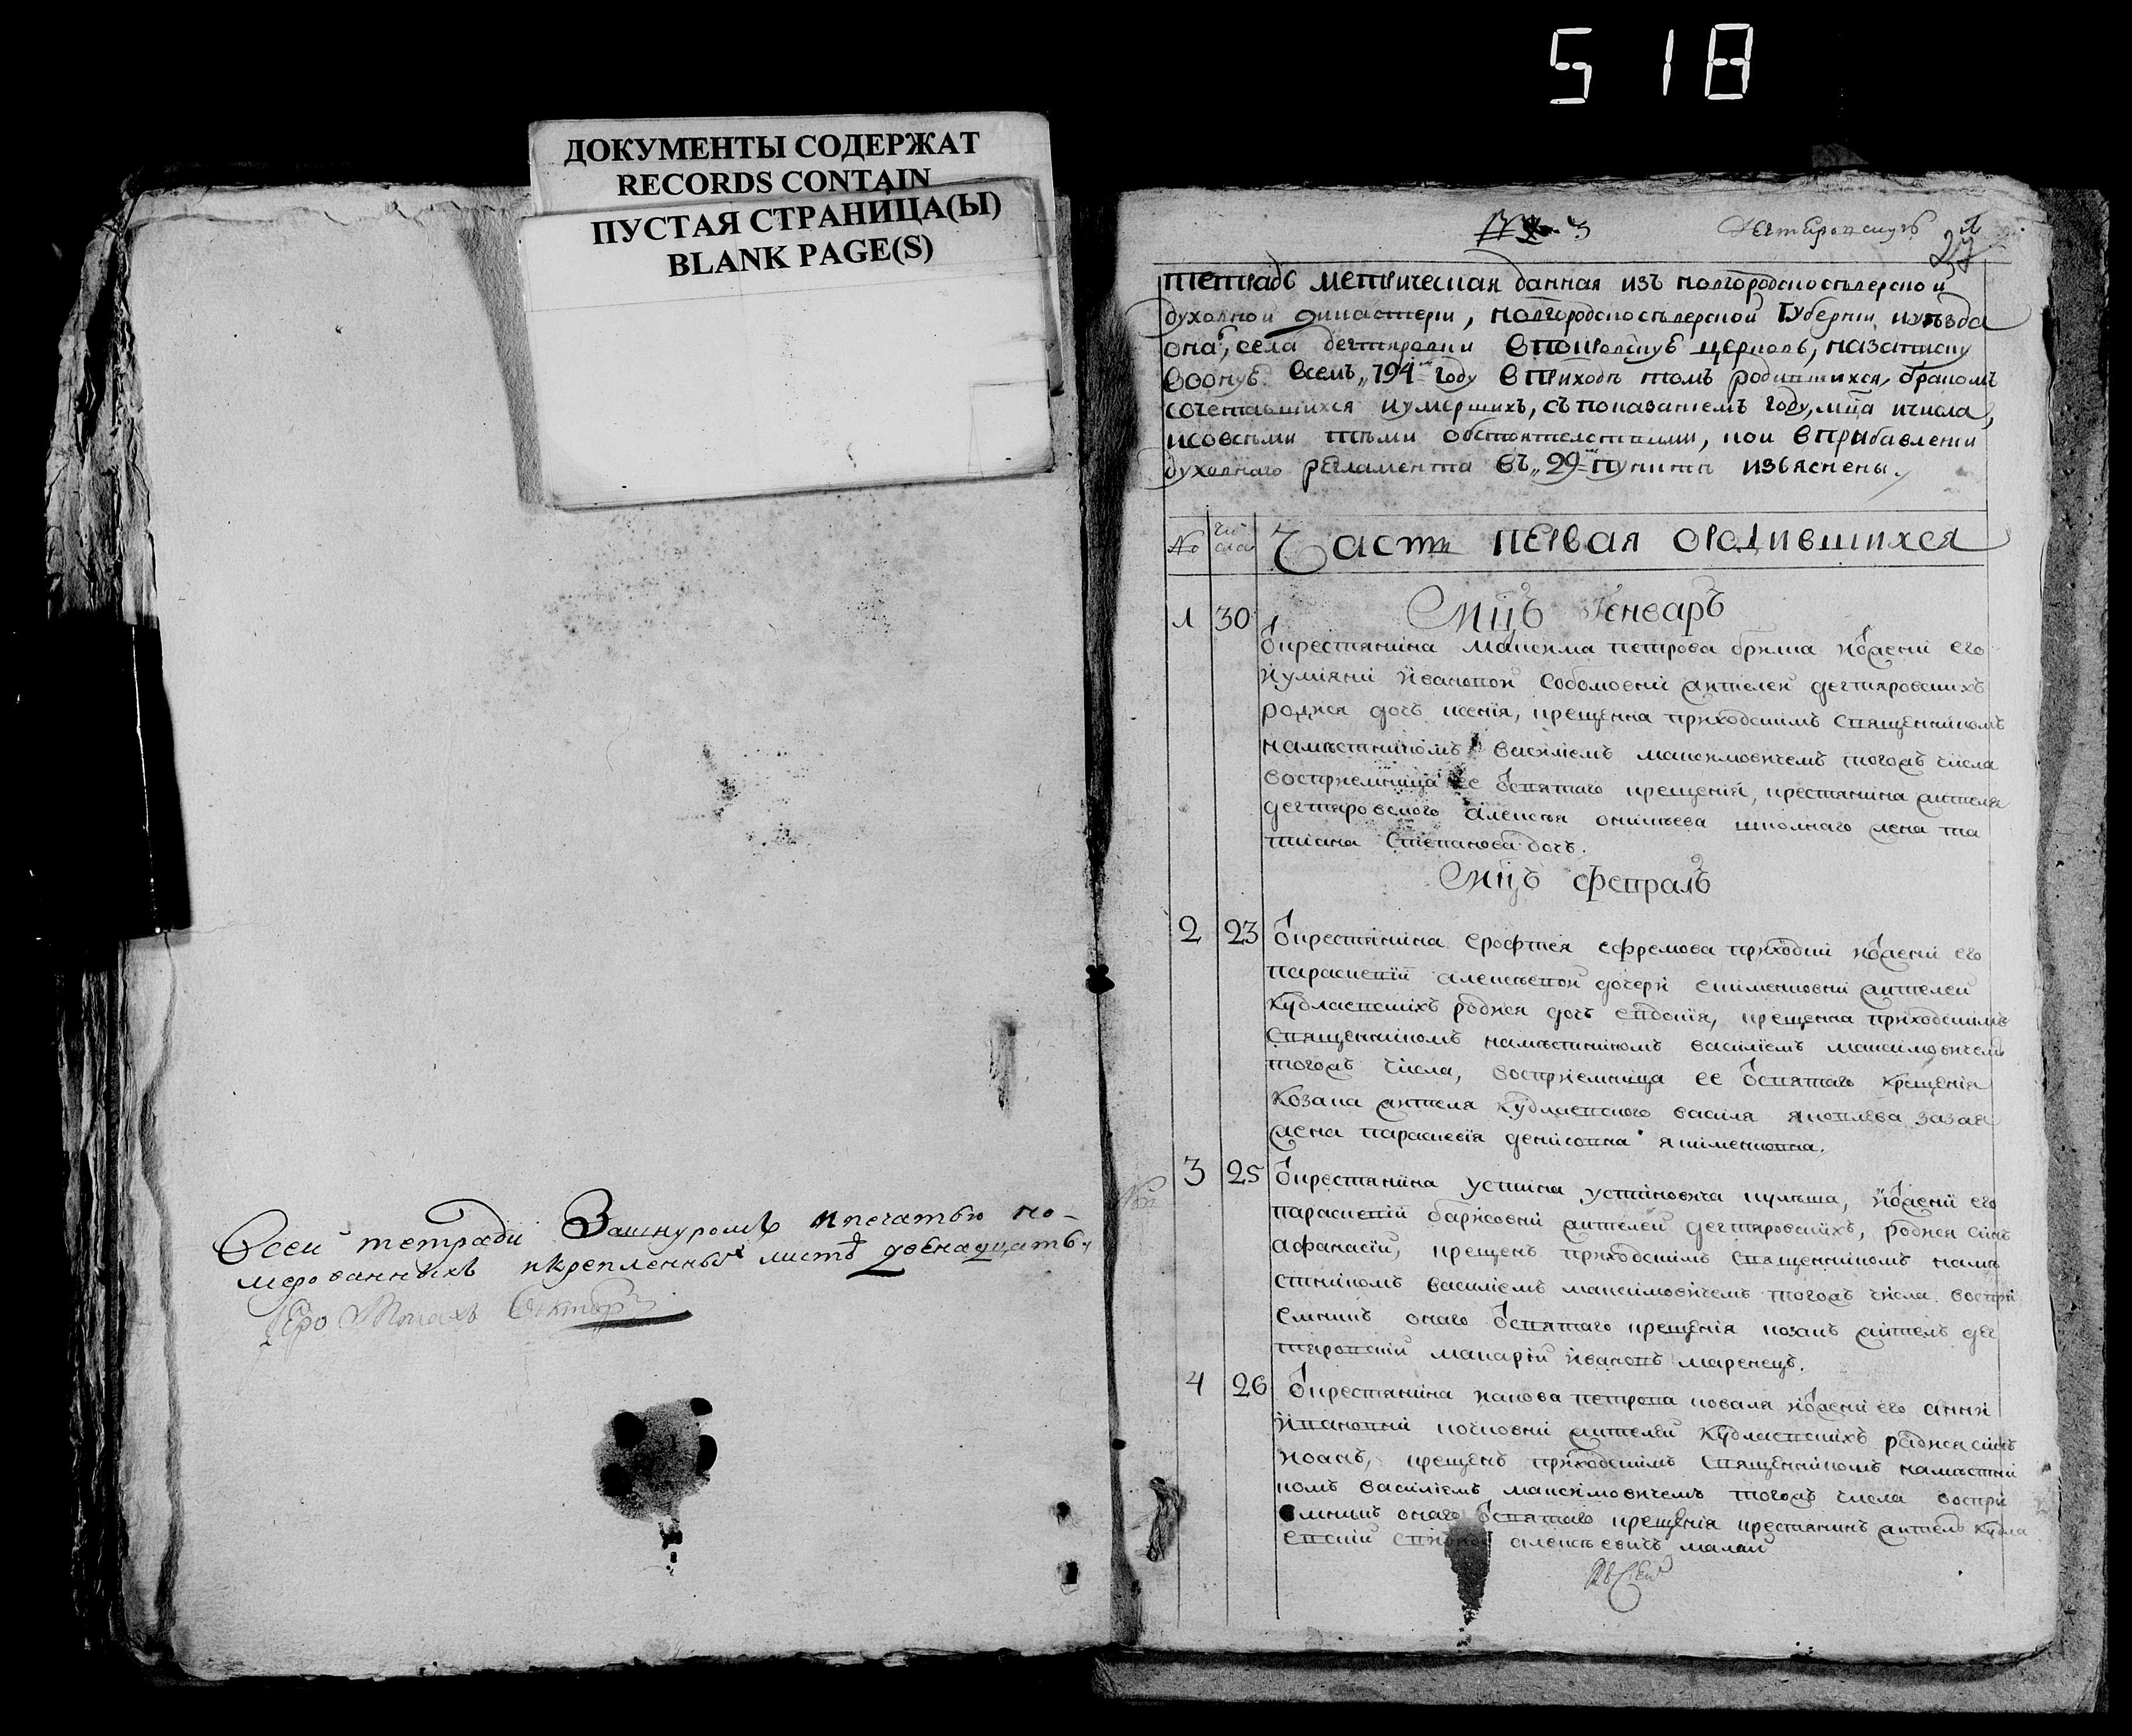 518
ДОКУМЕНТЫ СОДЕРЖАТ
RECORDS CONTAIN
ПУСТАЯ СТРАНИЦА(Ы)
BLANK PAGE(S)
Всей тетради Зашнуромъ ипечатью но-
мерованныхъ икрепленныхъ листъ двенадцать
Иеро Монахъ
27
тетрадь метрическая данная изъ новгородскосѣверской
духовной дикастерїи, новгородскосѣверской Губернїи иуѣзда
онаго, села дегтяровки впокровскую церковь, назаписку
вооную всемъ „794“ году вприходѣ томъ родившихся, бракомъ
сочетавшихся иумершихъ, съпоказанїемъ году, мца ичисла,
исовсѣми тѣми обстоятелствами, кои вприбавленїи
духовнаго регламента въ „29“ пунктѣ изъяснены.
№ чи сла Часть первая ородившихся
Мцъ Генваръ
1 30 Укрестянина Максима петрова иЖени его
Иванвой жителей дегтяровскихъ
родися дочъ ксенїя, крещенна приходскимъ Священникомъ
намѣстникомъ василїемъ максимовичемъ тогожъ числа
восприемница ее отсвятаго крещенїя, крестянина жителя
дегтяровского алексѣя школнаго жена та
тиана Степанова дочъ.
Мцъ февралъ
2 23 Укрестянина ерофтея ефремова приходки иЖени его
параскевїи алексѣевой дочери жителей
Кудлаевскихъ родися дочъ евдокїя, крещенна приходскимъ
Священникомъ намѣстникомъ василїемъ максимовичемъ
тогожъ числа, восприемница ее отсвятаго крещенїя
Козака жителя Кудлаевского василя яковлева
жена параскевїя денисовна якименкова.
3 25 Укрестянина устина устиновича кулѣша, иЖени его
параскевїи барисовни жителей дегтяровскихъ, родися синъ
афанасїй, крещенъ приходскимъ Священникомъ намѣ
стникомъ василїемъ максимовичемъ тогожъ числа воспри
емникъ онаго отсвятаго крещенїя козакъ жителъ дег
тяровскїй макарїй ивановъ маренецъ.
4 26 Укрестянина якова петрова коваля иЖени его анни
жителей Кудлаевскихъ родися синъ
иоанъ, крещенъ приходскимъ Священникомъ намѣстни
комъ василїемъ максимовичемъ тогожъ числа воспри
емникъ онаго отсвятаго крещенїя крестянинъ жителъ кудла
евскїй алексѣевичъ малай